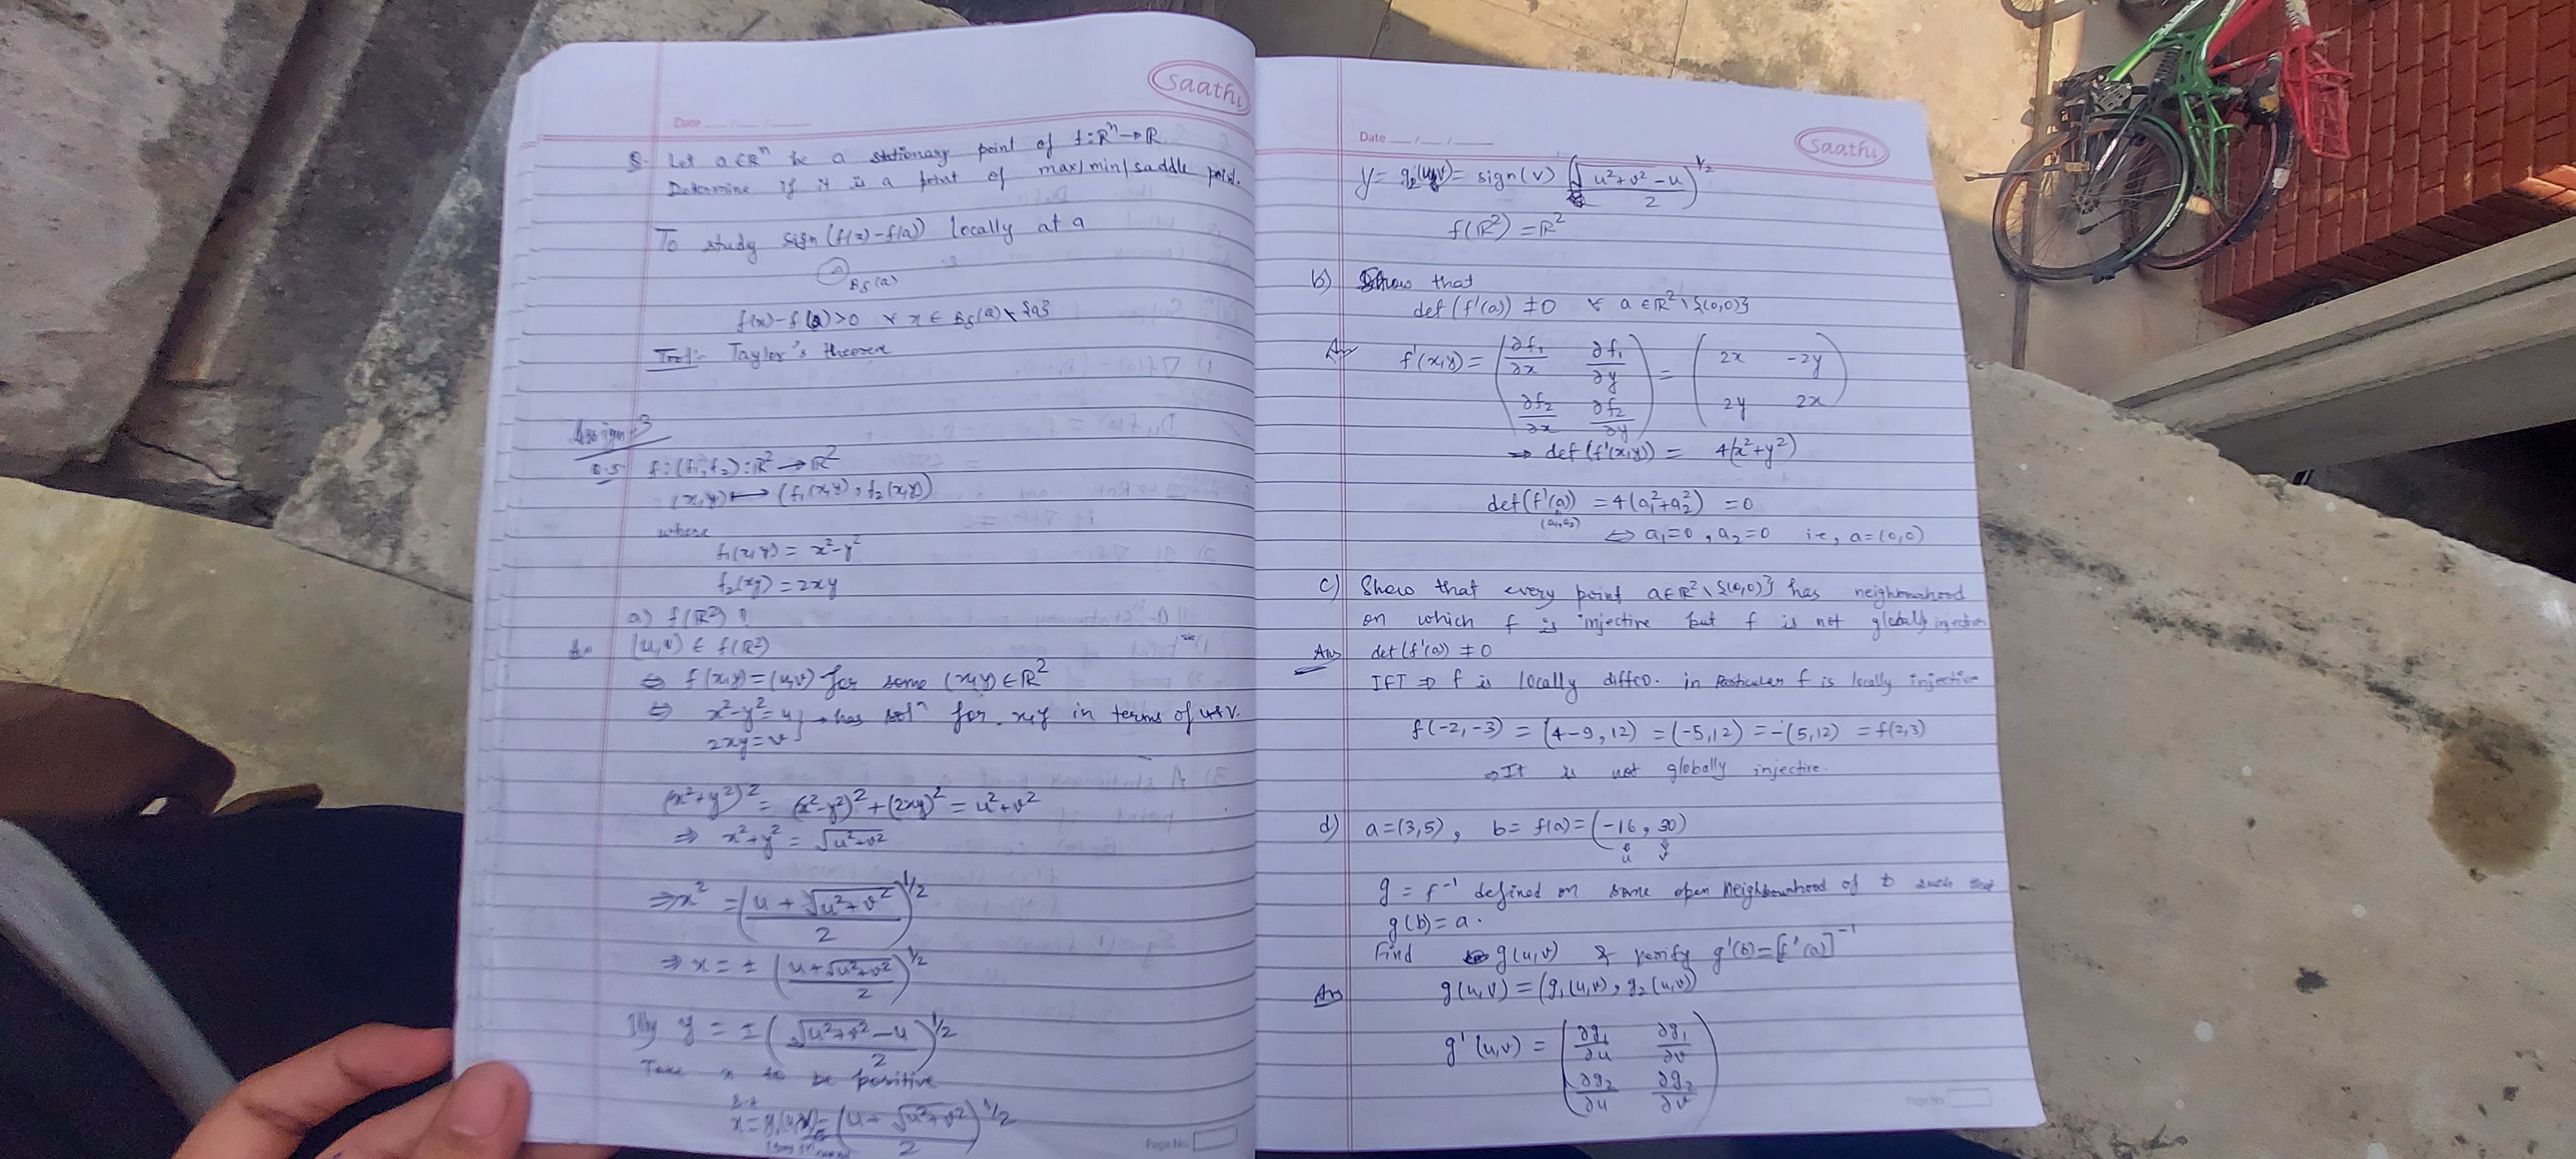 saathi
Date
Q. Let a ∈ ℝⁿ be a stationary point of f: ℝⁿ → ℝ.
Determine if it is a point of max/min/saddle point.
To study sign (f(x)-f(a)) locally at a
Bδ(a)
f(x)-f(a)>0 ∀ x ∈ Bδ(a)\{a}
Tool:- Taylor's theorem
Assign-3
Q.5 f=(f₁,f₂):ℝ²→ℝ²
(x,y)↦(f₁(x,y), f₂(x,y))
where
f₁(x,y) = x²-y²
f₂(x,y) = 2xy
a) f(ℝ²) ?
Ans (u,v) ∈ f(ℝ²)
⇔ f(x,y)=(u,v) for some (x,y)∈ℝ²
⇔ x²-y²=u } → has solⁿ for x,y in terms of u&v.
2xy=v
(x²+y²)² = (x²-y²)²+(2xy)² = u²+v²
⇒ x²+y² = √u²+v²
⇒ x² = ((u+√u²+v²)/2)^1/2
⇒ x = ± ((u+√u²+v²)/2)^1/2
Illy y = ± ((√u²+v²-u)/2)^1/2
Take x to be positive
x = g₁(u,v) = ((u+√u²+v²)/2)^1/2
Page No.
Date
saathi
y = g₂(u,v) = sign(v) ((√u²+v²-u)/2)^1/2
f(ℝ²)=ℝ²
b) Show that
det (f'(a)) ≠0 ∀ a ∈ℝ²\{(0,0)}
Ans f'(x,y) = (∂f₁/∂x ∂f₁/∂y = (2x -2y
∂f₂/∂x ∂f₂/∂y) 2y 2x)
⇒ det (f'(x,y)) = 4(x²+y²)
det(f'(a)) = 4(a₁²+a₂²) =0
(a₁,a₂)
⇔ a₁=0, a₂=0 i.e, a=(0,0)
c) Show that every point a∈ℝ²\{(0,0)} has neighbourhood
on which f is injective but f is not globally injective
Ans det(f'(a)) ≠0
IFT ⇒ f is locally diffeo. in Particular f is locally injective
f(-2,-3) = (4-9, 12) = (-5,12) = -(5,12) = f(2,3)
⇒ It is not globally injective.
d) a=(3,5), b= f(a)=(-16, 30)
u v
g = f⁻¹ defined on some open neighbourhood of b such that
g(b)= a.
Find g(u,v) & verify g'(b)=[f'(a)]⁻¹
Ans g(u,v) = (g₁(u,v), g₂(u,v))
g'(u,v) = (∂g₁/∂u ∂g₁/∂v
∂g₂/∂u ∂g₂/∂v)
Page No.